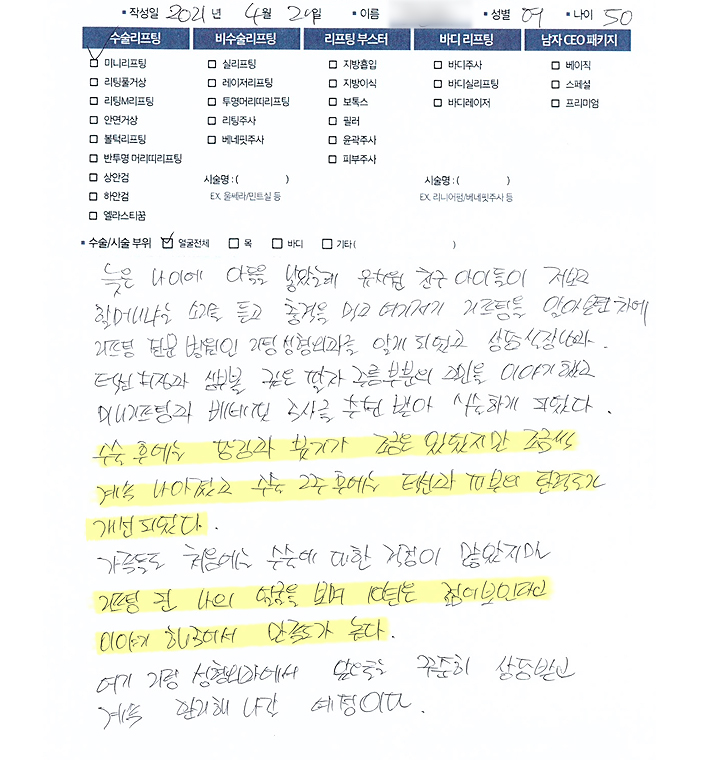 ▪ 작성일 2021년 4월 24일 ▪ 이름 ▪ 성별 여 ▪ 나이 50
수술리프팅 비수술리프팅 리프팅 부스터 바디 리프팅 남자 CEO 패키지
☑ 미니리프팅 ☐ 실리프팅 ☐ 지방흡입 ☐ 바디주사 ☐ 베이직
☐ 리팅풀거상 ☐ 레이저리프팅 ☐ 지방이식 ☐ 바디실리프팅 ☐ 스페셜
☐ 리팅M리프팅 ☐ 투명머리띠리프팅 ☐ 보톡스 ☐ 바디레이저 ☐ 프리미엄
☐ 안면거상 ☐ 리팅주사 ☐ 필러
☐ 볼턱리프팅 ☐ 베네핏주사 ☐ 윤곽주사
☐ 반투명 머리띠리프팅 ☐ 피부주사
☐ 상안검 시술명 : ( ) 시술명 : ( )
☐ 하안검 EX. 울쎄라/민트실 등 EX. 리니어펌/베네핏주사 등
☐ 엘라스티꿈
▪ 수술/시술 부위 ☑ 얼굴전체 ☐ 목 ☐ 바디 ☐ 기타 ( )
늦은 나이에 아들을 낳았는데 유치원 친구 아이들이 저보고
할머니냐는 소리를 듣고 충격을 먹고 여기저기 리프팅을 알아보던 차에
리프팅 전문 병원인 리팅성형외과를 알게 되었고 상담실장님과
턱선 처짐과 심부볼 깊은 팔자 주름부분의 고민을 이야기했고
미니리프팅과 베네핏 주사를 추천 받아 시술하게 되었다.
수술 후에는 당김과 붓기가 조금은 있었지만 조금씩
계속 나아졌고 수술 2주 후에는 턱선과 피부의 탄력도가
개선되었다.
가족들도 처음에는 수술에 대한 걱정이 많았지만
리프팅 된 나의 얼굴을 보며 10년은 젊어보인다고
이야기 해주어서 만족도가 높다.
여기 리팅 성형외과에서 앞으로는 꾸준히 상담받고
계속 관리해 나갈 예정이다.